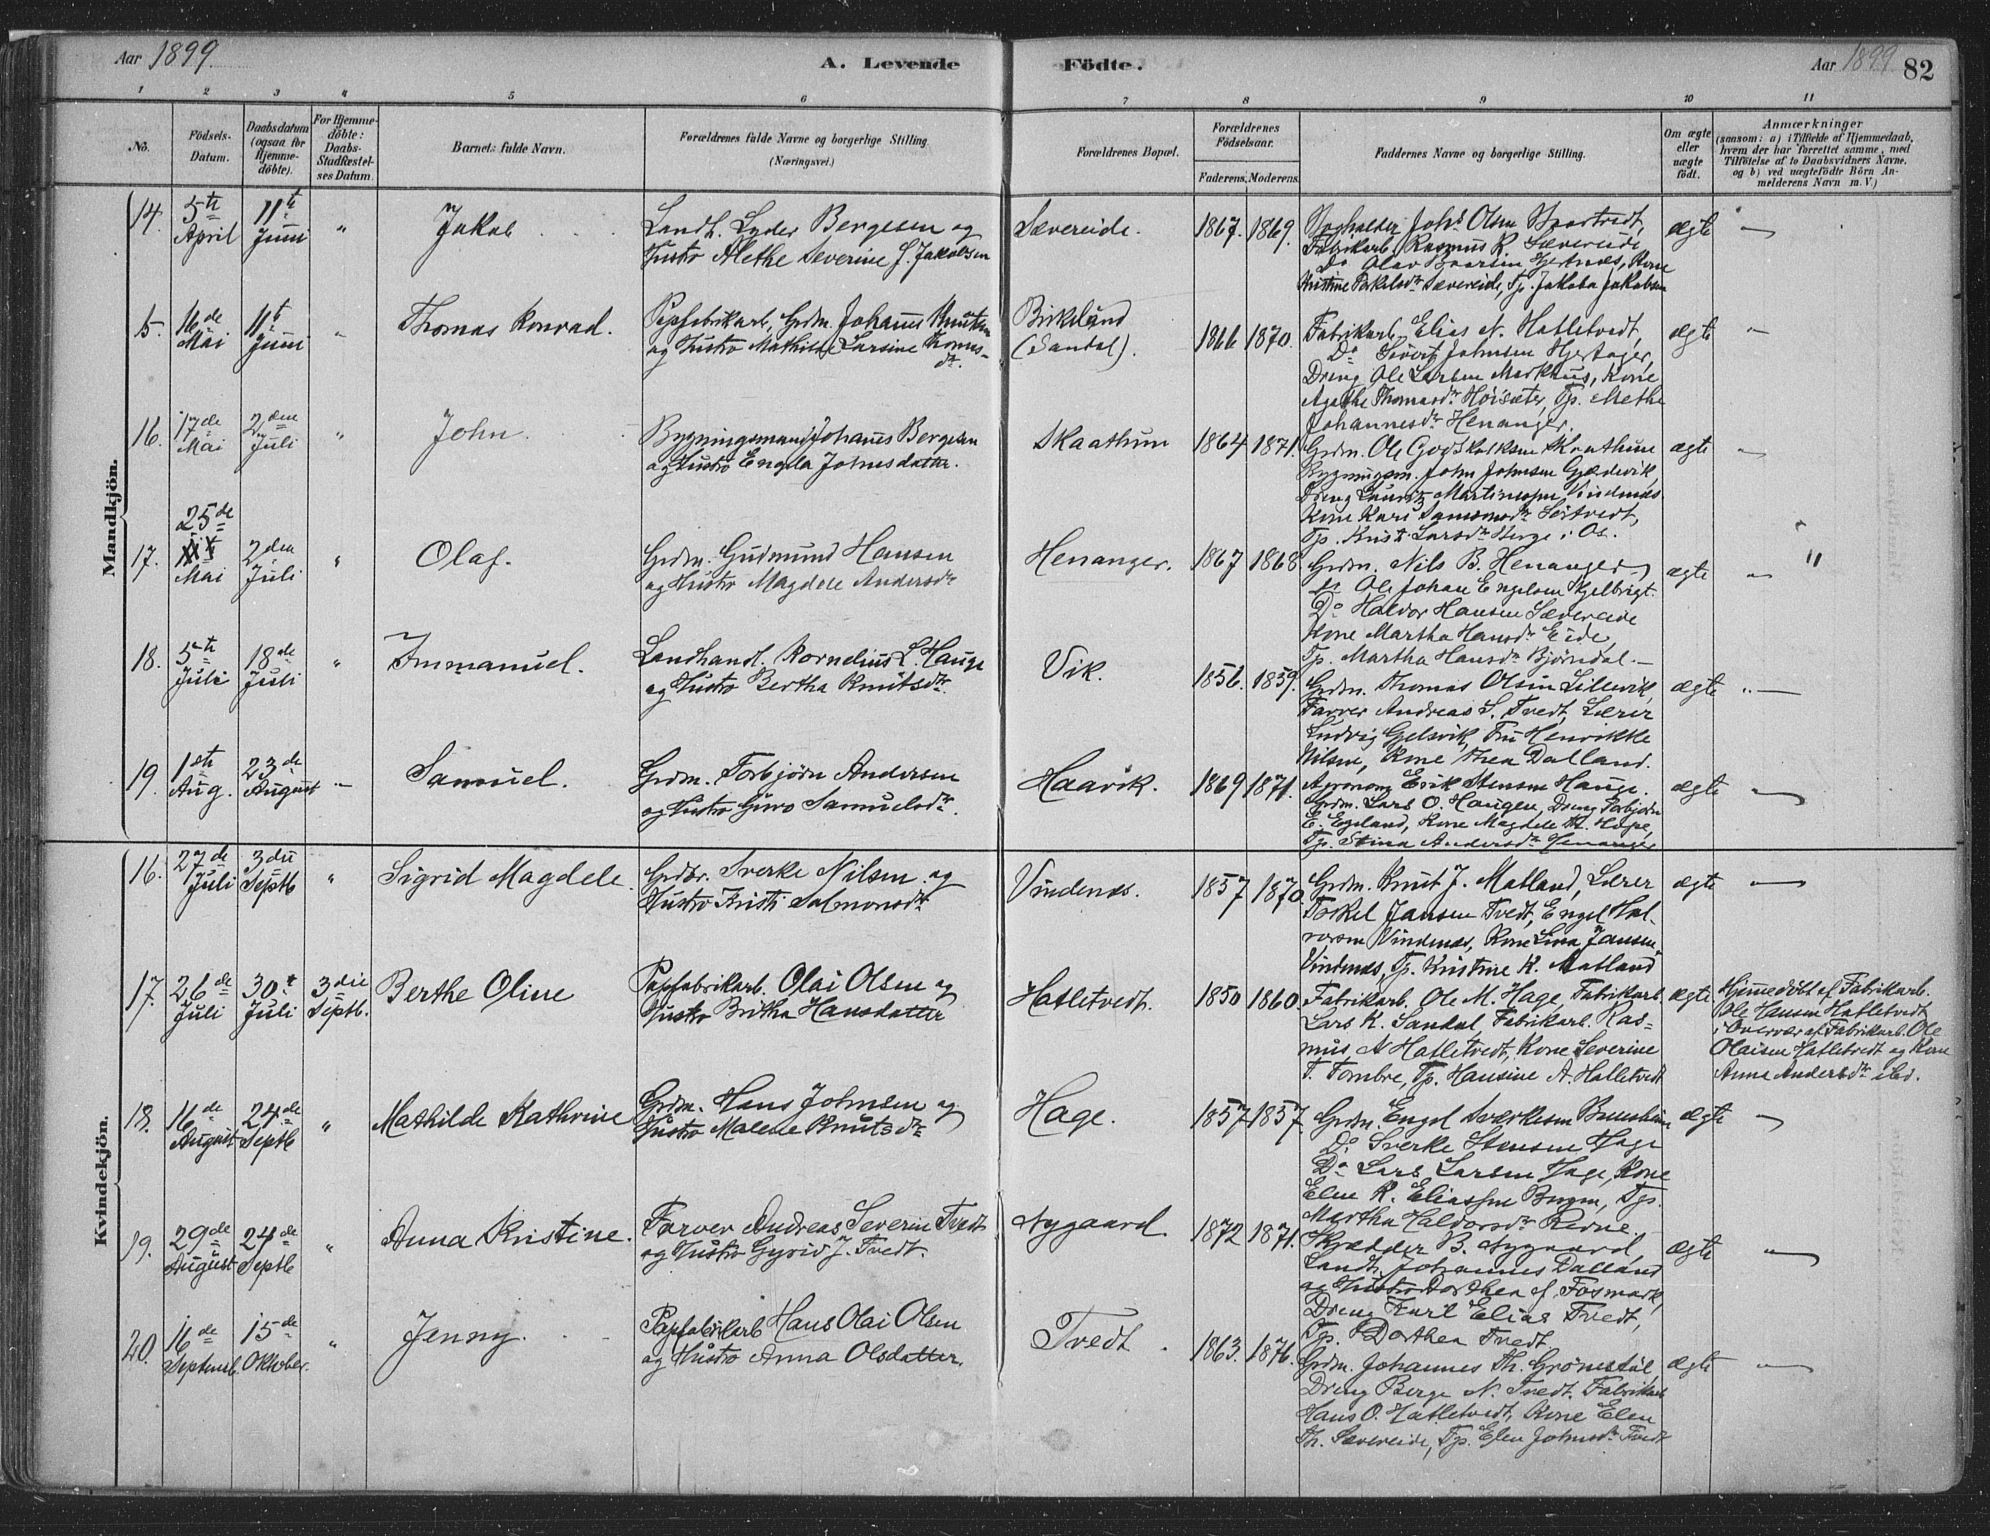 Aar 1899.
A. Levende Födte.
Aar 1899
82
1 2 3 4 5 6 7 8 9 10 11
No.
Födsels-Datum.
Daabsdatum (ogsaa for Hjemme-döbte).
For Hjemme-döbte: Daabs-Stadfæstel-ses Datum.
Barnets fulde Navn.
Forældrenes fulde Navne og borgerlige Stilling (Næringsvei.)
Forældrenes Bopæl.
Forældrenes Födselsaar.
Faderens. Moderens.
Faddernes Navne og borgerlige Stilling.
Om ægte eller uægte födt.
Anmærkninger
(saasom: a) i Tilfælde af Hjemmedaab,
hvem der har forrettet samme, med
Tilföielse af to Daabsvidners Navne,
og b) ved uægtefödte Börn An-
melderens Navn m. V.)
Mandkjön.
14. 5te April 11te Juni " Jakob
Landh. Lyder Bergesen og
Hustro Alethe Severine J. Jakobsen
Sævereide. 1867. 1869.
Olsen
Fabrikarb. Rasmus R. Sævereide,
Do Olav
Sævereide, Tp. Jakoba Jakobsen
ægte "
15. 16de Mai 11te Juni " Thomas Konrad.
Papfabrikarb. Grdm. Johannes Knutsen
og Hustro Mathilde Larsine
Birkeland
(Sandal).
1866 1870.
Fabrikarb. Elias N. Hatletvedt,
Do Sivert Johnsen Hjertager,
Dreng Ole Larsen Markhus, Kone
Agathe Thomasdr Høisæter, Tp. Methe
Johannesdr Henanger.
ægte "
16. 17de Mai 2den Juli " John.
Bygningsmand Johannes Bergesen
og Hustro Engela Johnsdatter.
Skaathun 1864 1871.
Grdm. Ole Godskalksen Skaathun
Bygningsm. John Johnsen Gjedevik,
Dreng Lauritz Martinsen Vindenæs
Kone Kari
Tp. Larsdr Berge i Os.
ægte "
17. 25de Mai 2den Juli " Olaf.
Grdm. Gudmund Hansen
og Hustro Magdele Andersdr
Henanger. 1867 1868
Grdm. Nils B. Henanger,
Do Ole Johan Engelsen
Do Haldor Hansen Sævereide
Kone Martha Hansdr Eide,
Tp. Martha Hansdr Bjørndal. —
ægte " "
18. 5te Juli 18de Juli " Immanuel.
Landhandl. Kornelius L. Hauge
og Hustro Bertha Knutsdr.
Vik. 1856. 1859.
Grdm. Thomas Olsen Lillevik,
Farver Andreas S. Tvedt, Lærer
Ludvig Gelsvik, Fru Henrikke
Nilsen, Kone Thea Dalland.
ægte "
19. 1ste Aug. 23de August " Samuel.
Grdm. Torbjørn Andersen
og Hustro Guro Samuelsdr.
Haavik. 1869 1871.
Agronom Erik Stensen Hauge.
Grdm. Lars O. Haugen, Dreng Torbjørn
E. Egeland, Kone Magdele Th. Hope,
Tp. Stina Andersdr Henanger
ægte "
Kvindekjön.
16. 27de Juli 3die Septb " Sigrid Magdele.
Grdbr. Sverke Nilsen og
Hustro Kristi Salmonsdr
Vindenæs. 1857 1870.
Grdm. Knut J. Matland, Lærer
Torkel Jansen Tvedt, Engel Hal-
vorsen Vindenæs, Kone Lina Jansen
Vindenæs, Tp. Kristine K. Matland
ægte "
17. 26de Juli 30te Juli 3die Septb. Berthe Oline
Papfabrikarb. Olai Olsen og
Hustro Britha Hansdatter
Hatletvedt. 1850 1860.
Fabrikarb. Ole M. Hage, Fabrikarb.
Lars K. Sandal, Fabrikarb. Ras-
mus A Hatletvedt, Kone Severine
T. Tombre, Tp. Hansine A. Hatletvedt
ægte
Hjemmedöbt af Fabrikarb.
Ole Hansen Hatletvedt
i Overvær af Fabrikarb. Ole
Olaisen Hatletvedt og Kone
Anna Andersdr ibd.
18. 16de August 24de Septb " Mathilde Kathrine
Grdm. Hans Johnsen og
Hustro Malene Knutsdr
Hage. 1857 1857
Grdm. Engel Sverkesen
Do Sverke Stensen Hage
Do Lars Larsen Hage, Kone
Elen K. Eliassen Tp.
Martha Haldorsdr
ægte "
19. 29de August 24de Septb " Anna Kristine.
Farver Andreas Severin Tvedt
og Hustro Gyrid J. Tvedt.
Nygaard 1872 1871.
Skrædder B. Nygaard,
Landh. Johannes Dalland
og Hustro Dorthea af Fosmark,
Dreng Karl Elias Tvedt,
Tp. Dorthea Tvedt.
ægte "
20. 16de Septemb. 15de Oktober. " Jenny.
Papfabrikarb Hans Olai Olsen
og Hustro Anna Olsdatter.
Tvedt. 1863. 1876.
Grdm. Johannes Th. Grönestöl,
Dreng Berge N. Tvedt. Fabrikarb
Hans O. Hatletvedt, Kone Elen
Th. Sævereide, Tp. Elen Johnsdr Tvedt
ægte "